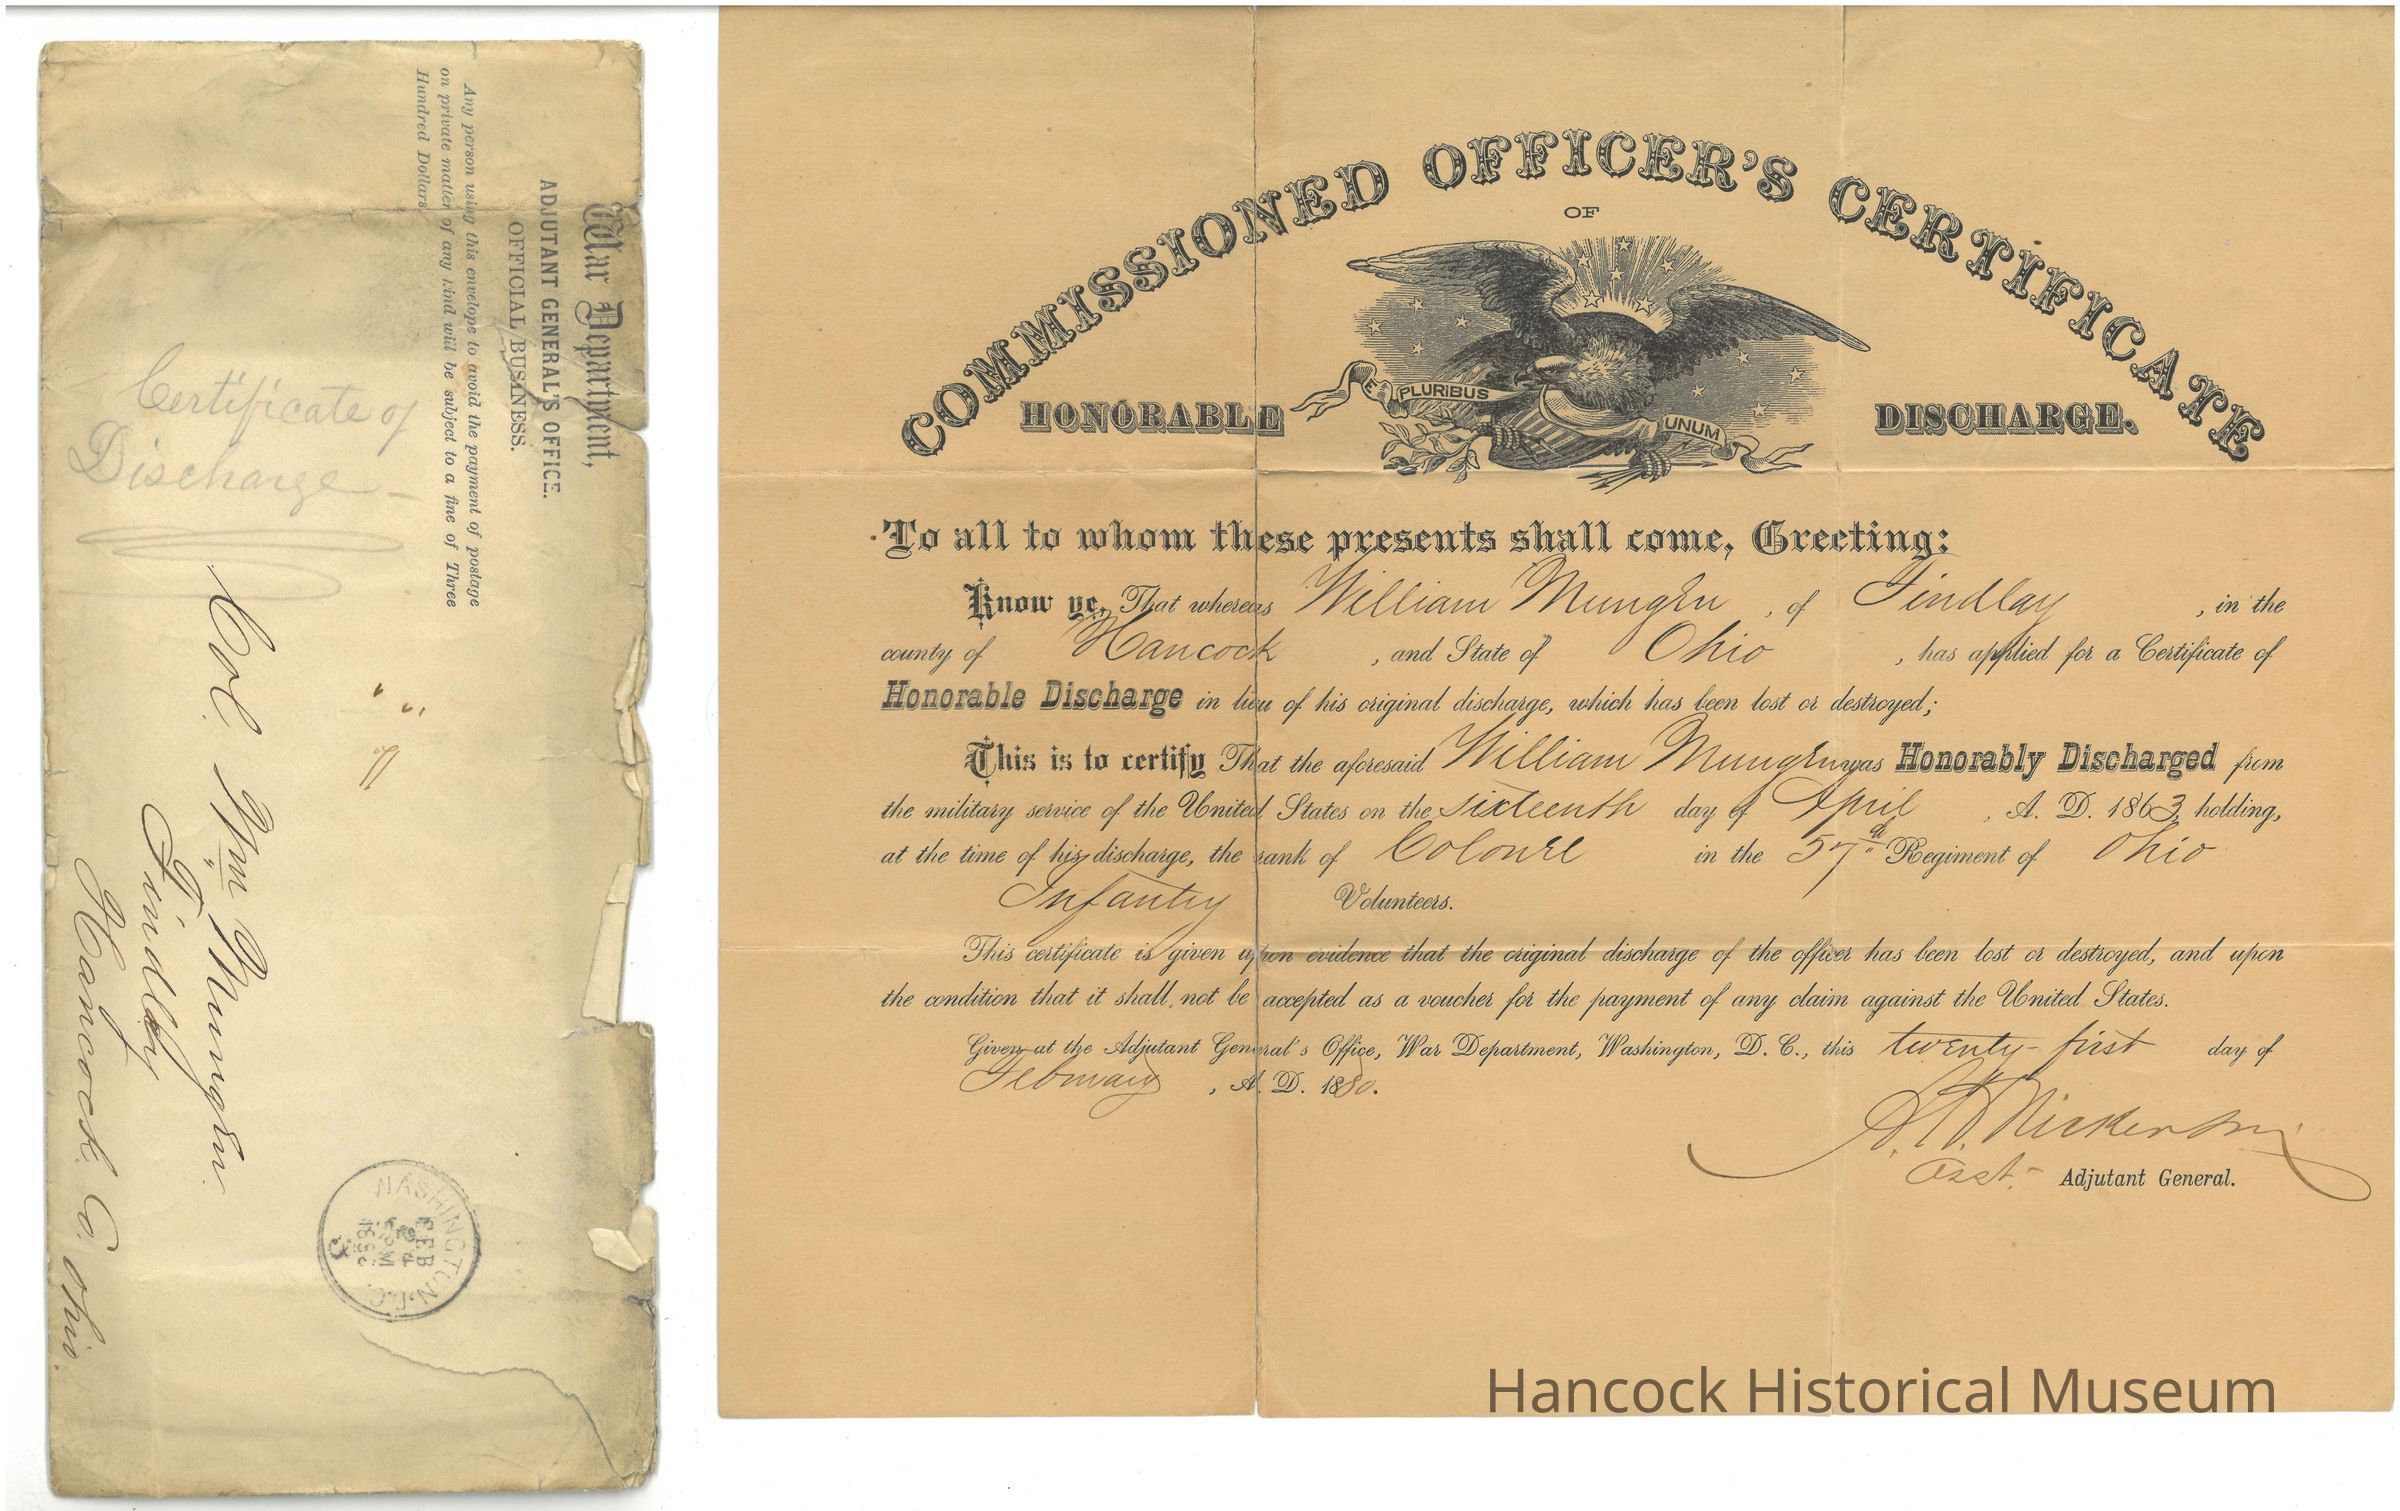 War Department,
ADJUTANT GENERAL'S OFFICE.
OFFICIAL BUSINESS.
Any person using this envelope to avoid the payment of postage
on private matter of any kind will be subject to a fine of Three
Hundred Dollars.
Certificate of
Discharge
Col. Wm Mungen
Findlay
Hancock Co.
Ohio.
WASHINGTON D.C.
FEB
24
COMMISSIONED OFFICER'S CERTIFICATE
OF
E PLURIBUS UNUM
HONORABLE DISCHARGE.
To all to whom these presents shall come, Greeting:
Know ye, That whereas William Mungen, of Findlay, in the
county of Hancock, and State of Ohio, has applied for a Certificate of
Honorable Discharge in lieu of his original discharge, which has been lost or destroyed;
This is to certify That the aforesaid William Mungen was Honorably Discharged from
the military service of the United States on the sixteenth day of April, A. D. 1863, holding,
at the time of his discharge, the rank of Colonel in the 57th Regiment of Ohio
Infantry Volunteers.
This certificate is given upon evidence that the original discharge of the officer has been lost or destroyed, and upon
the condition that it shall not be accepted as a voucher for the payment of any claim against the United States.
Given at the Adjutant General's Office, War Department, Washington, D. C., this twenty-first day of
February, A. D. 1880.
Nickerson
Asst. Adjutant General.
Hancock Historical Museum